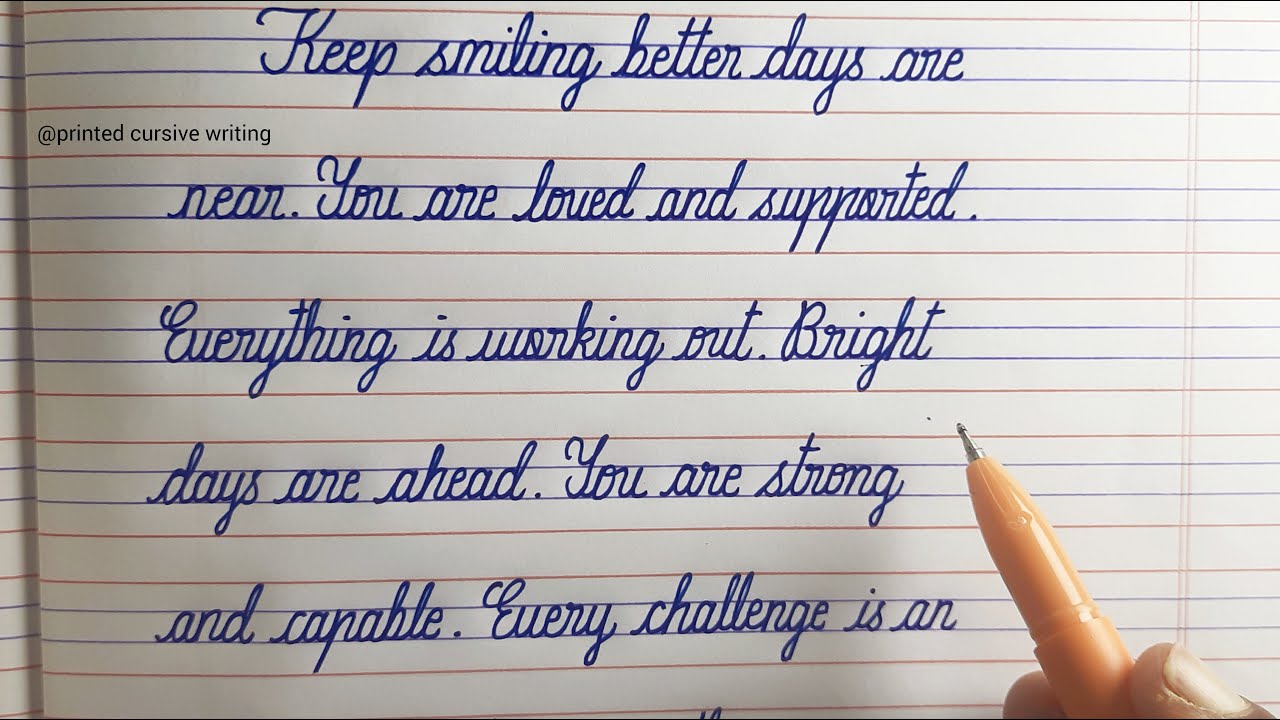 Keep smiling better days are
@printed cursive writing
near. You are loved and supported.
Everything is working out. Bright
days are ahead. You are strong
and capable. Every challenge is an